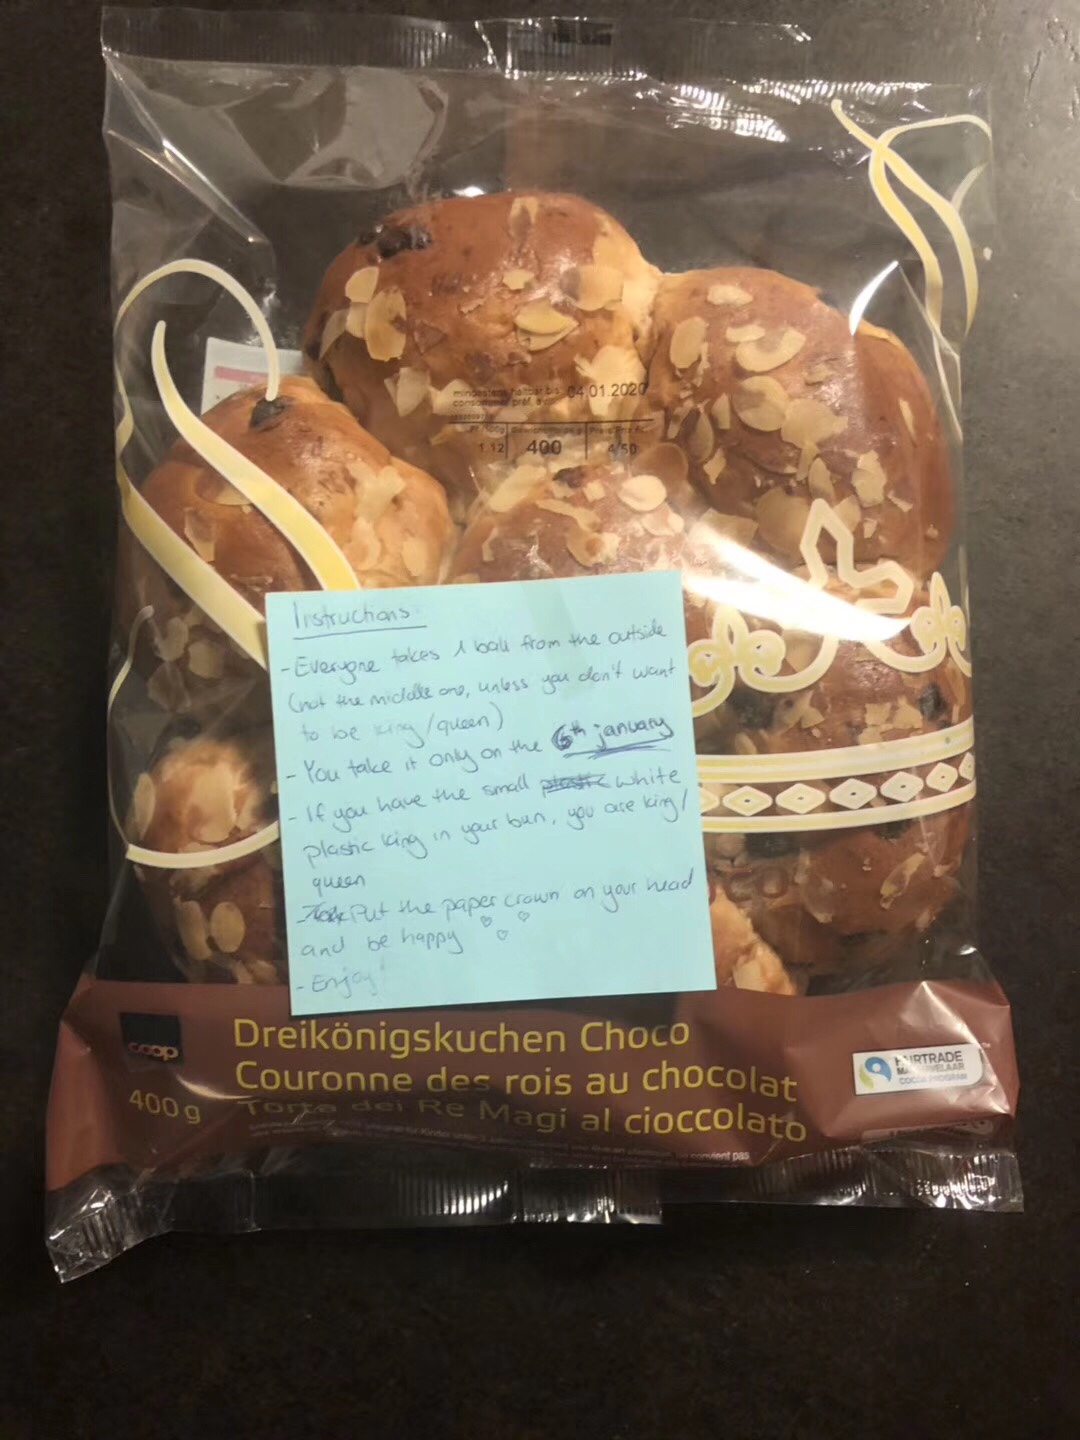 mindestens haltbar bis 04.01.2020
consommer préf. av.
1.12 400 4.50
Instructions
- Everyone takes 1 ball from the outside
(not the middle one, unless you don't want
to be king/queen)
- You take it only on the 6th january
- If you have the small plastic white
plastic king in your bun, you are king/
queen
- Put the paper crown on your head
and be happy
- Enjoy!
coop
400 g
Dreikönigskuchen Choco
Couronne des rois au chocolat
Torta dei Re Magi al cioccolato
FAIRTRADE
MAX HAVELAAR
COCOA PROGRAM
convient pas